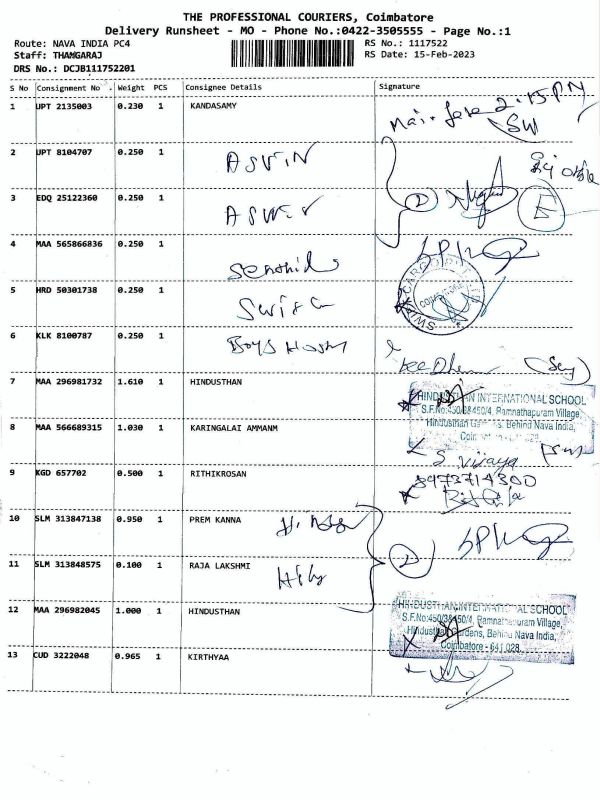 THE PROFESSIONAL COURIERS, Coimbatore
Delivery Runsheet - MO - Phone No.:0422-3505555 - Page No.:1
Route: NAVA INDIA PC4
RS No.: 1117522
Staff: THANGARAJ
RS Date: 15-Feb-2023
DRS No.: DCJB111752201
S No Consignment No . Weight PCS Consignee Details Signature
1 UPT 2135003 0.230 1 KANDASAMY
2.15 PM
2 UPT 8104707 0.250 1 ASVIN
3 EDQ 25122360 0.250 1 ASWIN
2 E
4 MAA 565866836 0.250 1
5 HRD 50301738 0.250 1
6 KLK 8100787 0.250 1 Boys
7 MAA 296981732 1.610 1 HINDUSTHAN
HINDUSTHAN INTERNATIONAL SCHOOL
S.F.No:450/38450/4, Ramnathapuram Village,
Hindusthan Gardens, Behind Nava India,
8 MAA 566689315 1.030 1 KARINGALAI AMMANM
S Vijaya
9 KGD 657702 0.500 1 RITHIKROSAN
8973714300
10 SLM 313847138 0.950 1 PREM KANNA
11 SLM 313848575 0.100 1 RAJA LAKSHMI
2
12 MAA 296982045 1.000 1 HINDUSTHAN
HINDUSTHAN INTERNATIONAL SCHOOL
S.F.No:450/38450/4, Ramnathapuram Village,
Hindusthan Gardens, Behind Nava India,
Coimbatore - 641 028.
13 CUD 3222048 0.965 1 KIRTHYAA